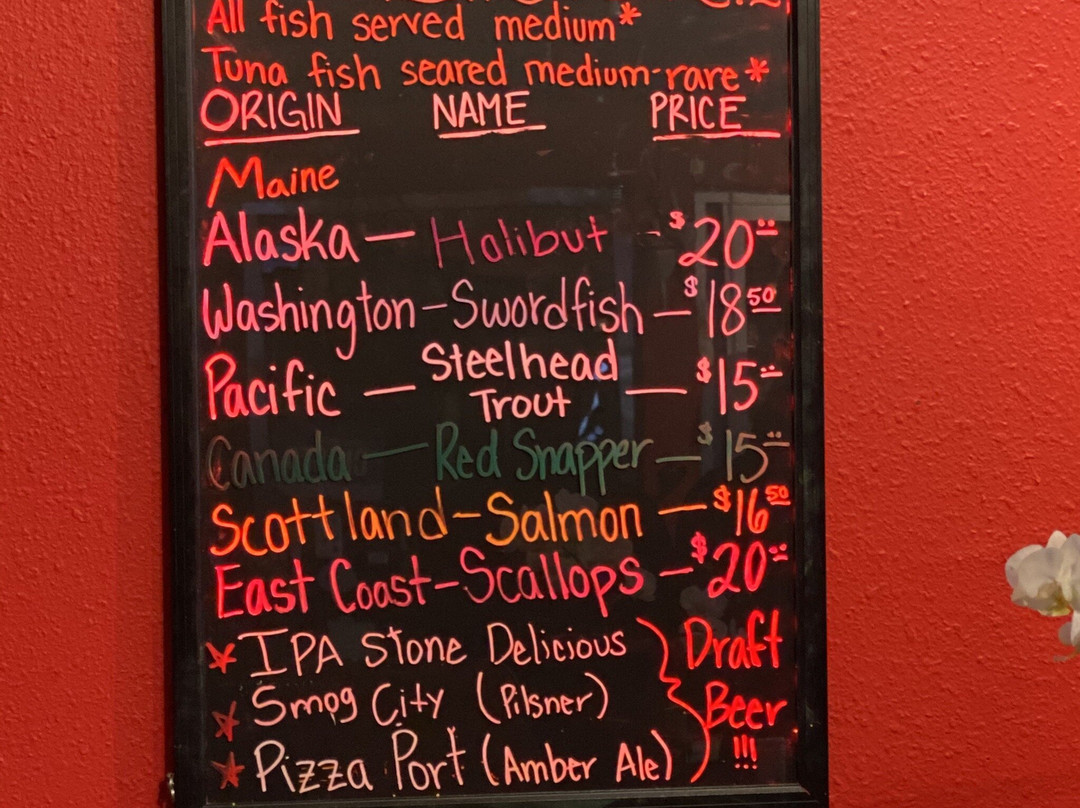 All fish served medium*
Tuna fish seared medium-rare*
ORIGIN NAME PRICE
Maine
Alaska — Halibut - $20.00
Washington - Swordfish — $18.50
Pacific — Steelhead Trout — $15.00
Canada — Red Snapper — $15.00
Scottland - Salmon — $16.50
East Coast - Scallops — $20.00
IPA Stone Delicious
Smog City (Pilsner)
Pizza Port (Amber Ale)
Draft
Beer
!!!